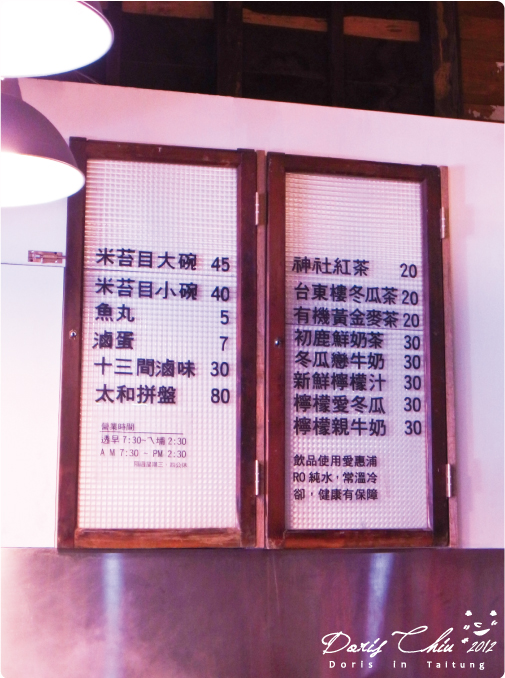 米苔目大碗 45
米苔目小碗 40
魚丸 5
滷蛋 7
十三間滷味 30
太和拼盤 80
營業時間
透早 7:30~ㄟ埔 2:30
A M 7:30 - PM 2:30
神社紅茶 20
台東樓冬瓜茶 20
有機黃金麥茶 20
初鹿鮮奶茶 30
冬瓜戀牛奶 30
新鮮檸檬汁 30
檸檬愛冬瓜 30
檸檬親牛奶 30
飲品使用愛惠浦
RO 純水，常溫冷
卻，健康有保障
Doris Chiu 2012
Doris in Taitung